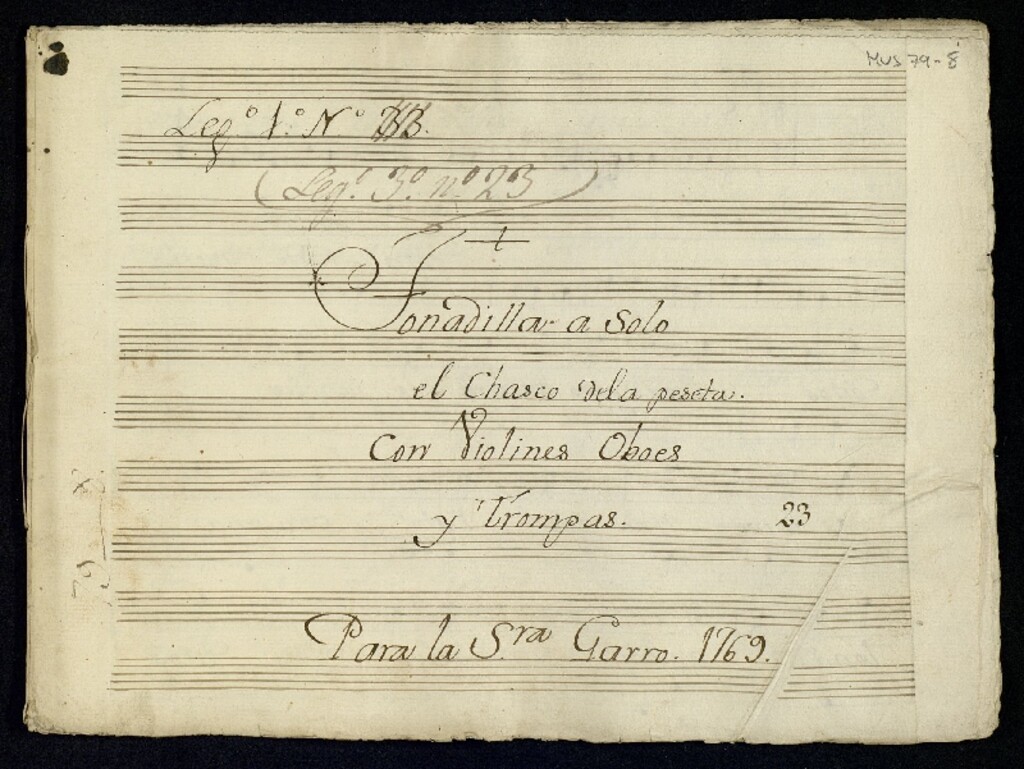 MUS 79-8
Leg.º 1.º N.º
(Leg.º 3.º nº 23)
Tonadilla a Solo
el Chasco dela peseta.
Con Violines Oboes
y Trompas. 23
Para la S.ra Garro. 1769.